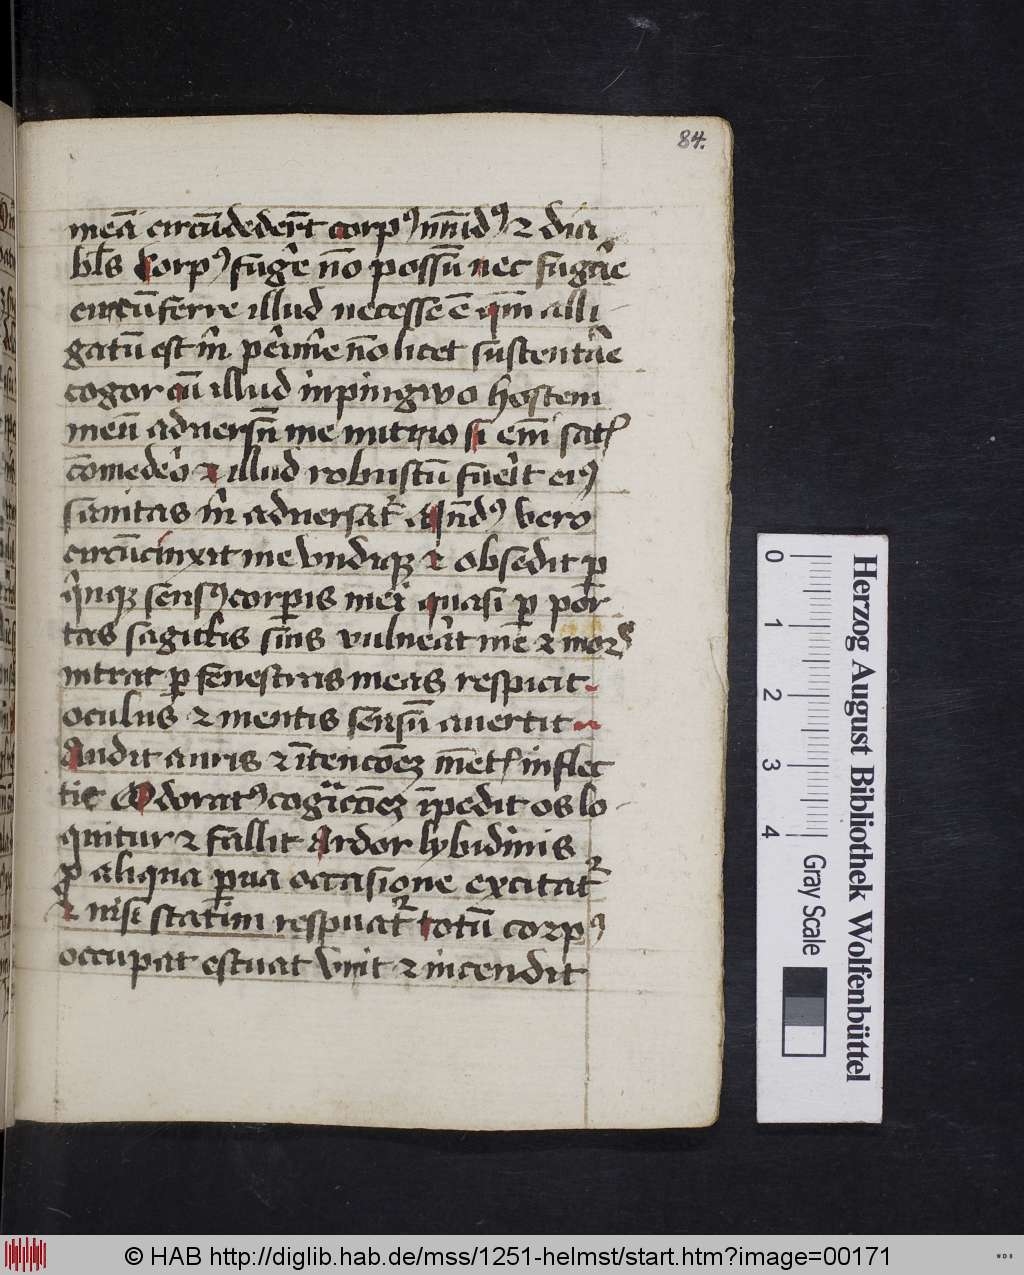 84.
meā circūdederūt corpꝰ mūdꝰ ⁊ dia
bl̄s Corpꝰ fug̾e nō possū nec fugāe
circūferre illud necesse ē qm̄ alli
gatū est m̄ ꝑimē nō licet sustentāe
cogor cū illud inpingwo hostem
meū adversū me nutrio si em̄ satꝭ
cōmedeō ⁊ illud robustū fuit eiꝰ
sanitas m̄ adversatᷣ Mūdꝰ vero
circūcinxit me vndiqꝫ ⁊ obsedit ꝑ
qͥnqꝫ sensꝰ corꝑis mei quasi ꝑ por
tas sagittis suis vulneāt me ⁊ mors
intrat ꝑ fenestras meas respicit
oculus ⁊ mentis sensū avertit
Audit auris ⁊ ītencōeꝫ mētꝭ inflec
tit Odoratꝰ cogͣcōeꝫ īpedit os lo
quitur ⁊ fallit Ardor lybidinis
ꝓ aliqua ꝑua occasione excitatᷣ
⁊ nisi statim respuatᷣ totū corpꝰ
occupat estuat vrit ⁊ incendit
0
1
2
3
4
Herzog August Bibliothek Wolfenbüttel
Gray Scale
© HAB http://diglib.hab.de/mss/1251-helmst/start.htm?image=00171